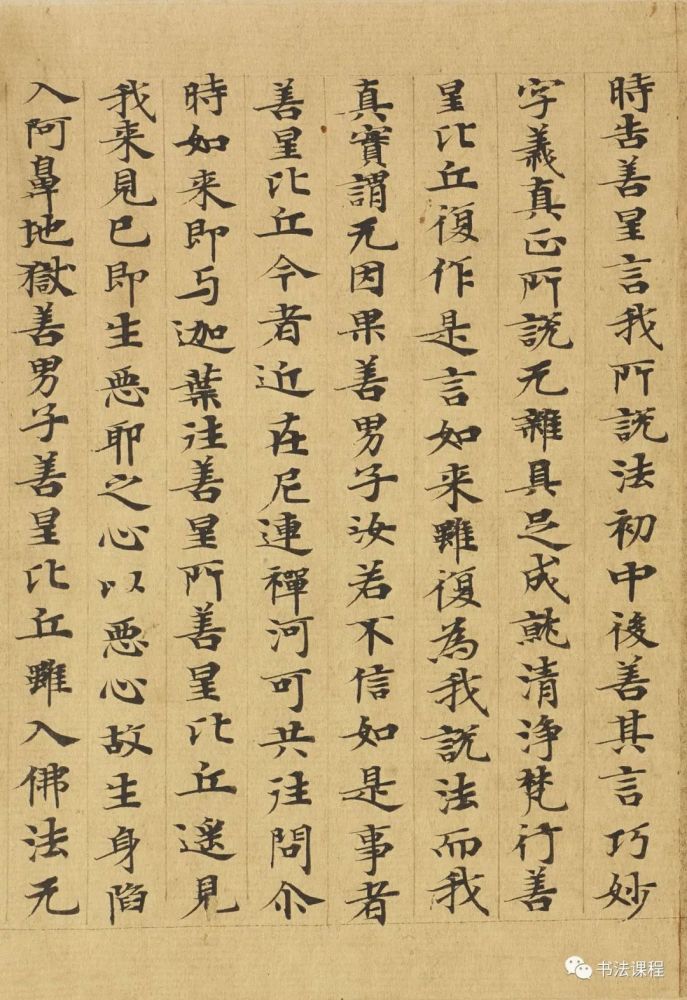 時告善星言我所説法初中後善其言巧妙
字義真正所説无雜具足成就清浄梵行善
星比丘復作是言如来雖復為我説法而我
真實謂无因果善男子汝若不信如是事者
善星比丘今者近在尼連禪河可共往問尒
時如来即与迦葉往善星所善星比丘遥見
我来見已即生惡耶之心以惡心故生身陷
入阿鼻地獄善男子善星比丘雖入佛法无
书法课程